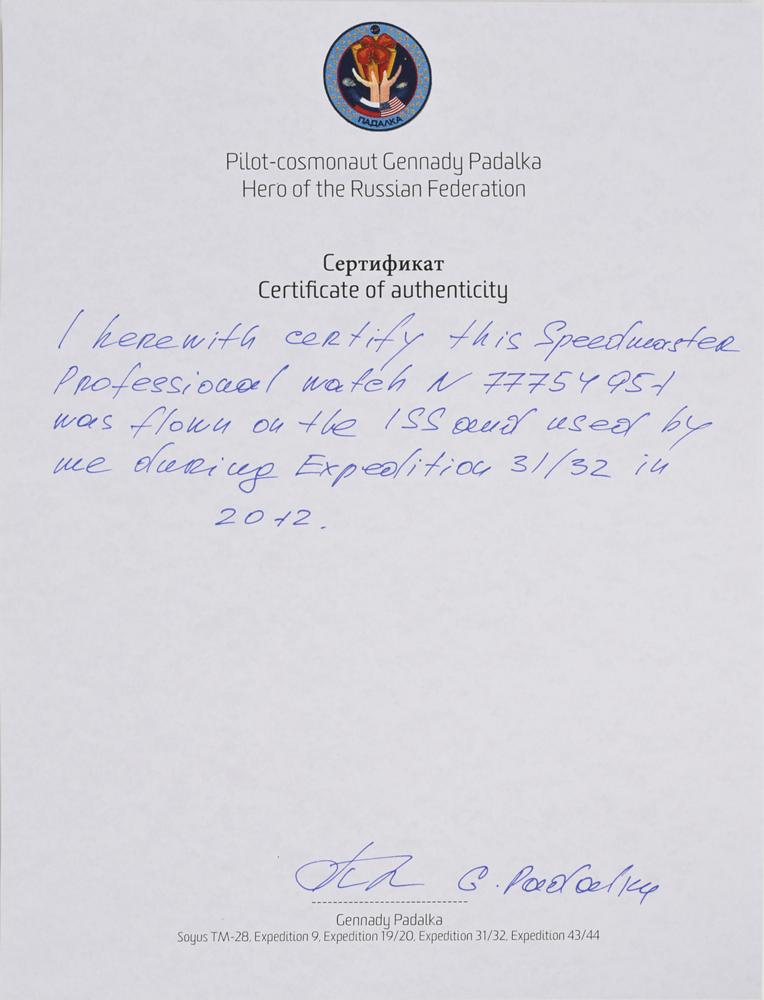 ПАДАЛКА
Pilot-cosmonaut Gennady Padalka
Hero of the Russian Federation
Сертификат
Certificate of authenticity
I herewith certify this Speedmaster
Professional watch N 77754951
was flown on the ISS and used by
me during Expedition 31/32 in
2012.
G. Padalka
Gennady Padalka
Soyus TM-28, Expedition 9, Expedition 19/20, Expedition 31/32, Expedition 43/44